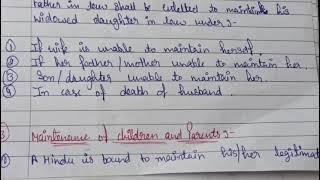 Father in law shall be entitled to maintain his
widowed daughter in law under :-
① If wife is unable to maintain herself.
② If her father/mother unable to maintain her.
③ Son/daughter unable to maintain her.
④ In case of death of husband.
Maintenance of children and Parents :-
A Hindu is bound to maintain his/her legitimat